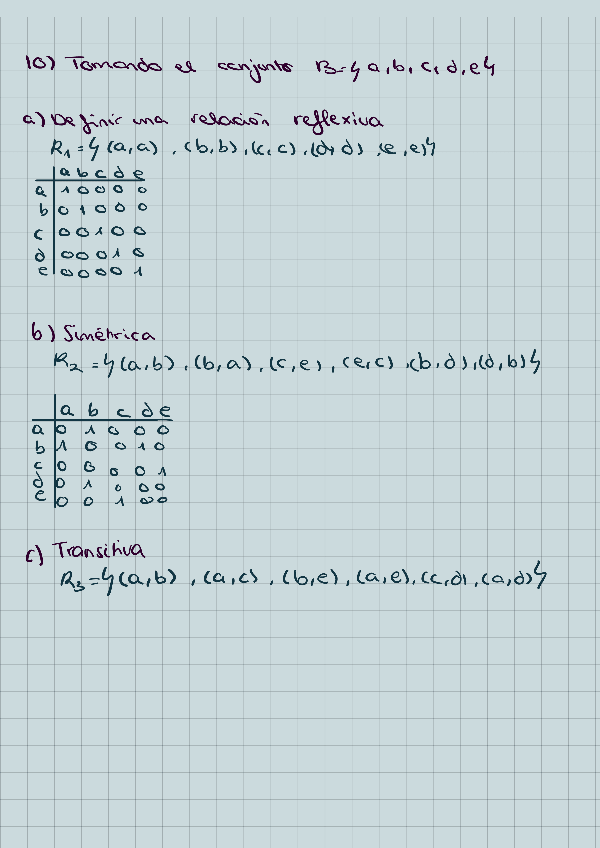 10) Tomando el conjunto B={a,b,c,d,e}
a) Definir una relación reflexiva
R₁={(a,a),(b,b),(c,c),(d,d),(e,e)}
a b c d e
a 1 0 0 0 0
b 0 1 0 0 0
c 0 0 1 0 0
d 0 0 0 1 0
e 0 0 0 0 1
b) Simétrica
R₂={(a,b),(b,a),(c,e),(e,c),(b,d),(d,b)}
a b c d e
a 0 1 0 0 0
b 1 0 0 1 0
c 0 0 0 0 1
d 0 1 0 0 0
e 0 0 1 0 0
c) Transitiva
R₃={(a,b),(a,c),(b,e),(a,e),(c,d),(a,d)}